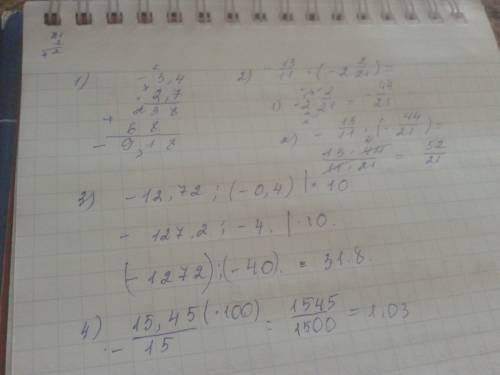 21
2
42
1) - 3,4
× 2,7
238
+ 68
- 9,18
2) - 13/11 · (-2 2/21) =
1) -2 2/21 = - 44/21
2) - 13/11 · (- 44/21) =
13 · 44 / 11 · 21 = 52/21
3) -12,72 : (-0,4) | · 10
- 127,2 : -4. | · 10.
(-1272) : (-40). = 31.8.
4) - 15,45 / 15 (· 100) = 1545/1500 = 1,03